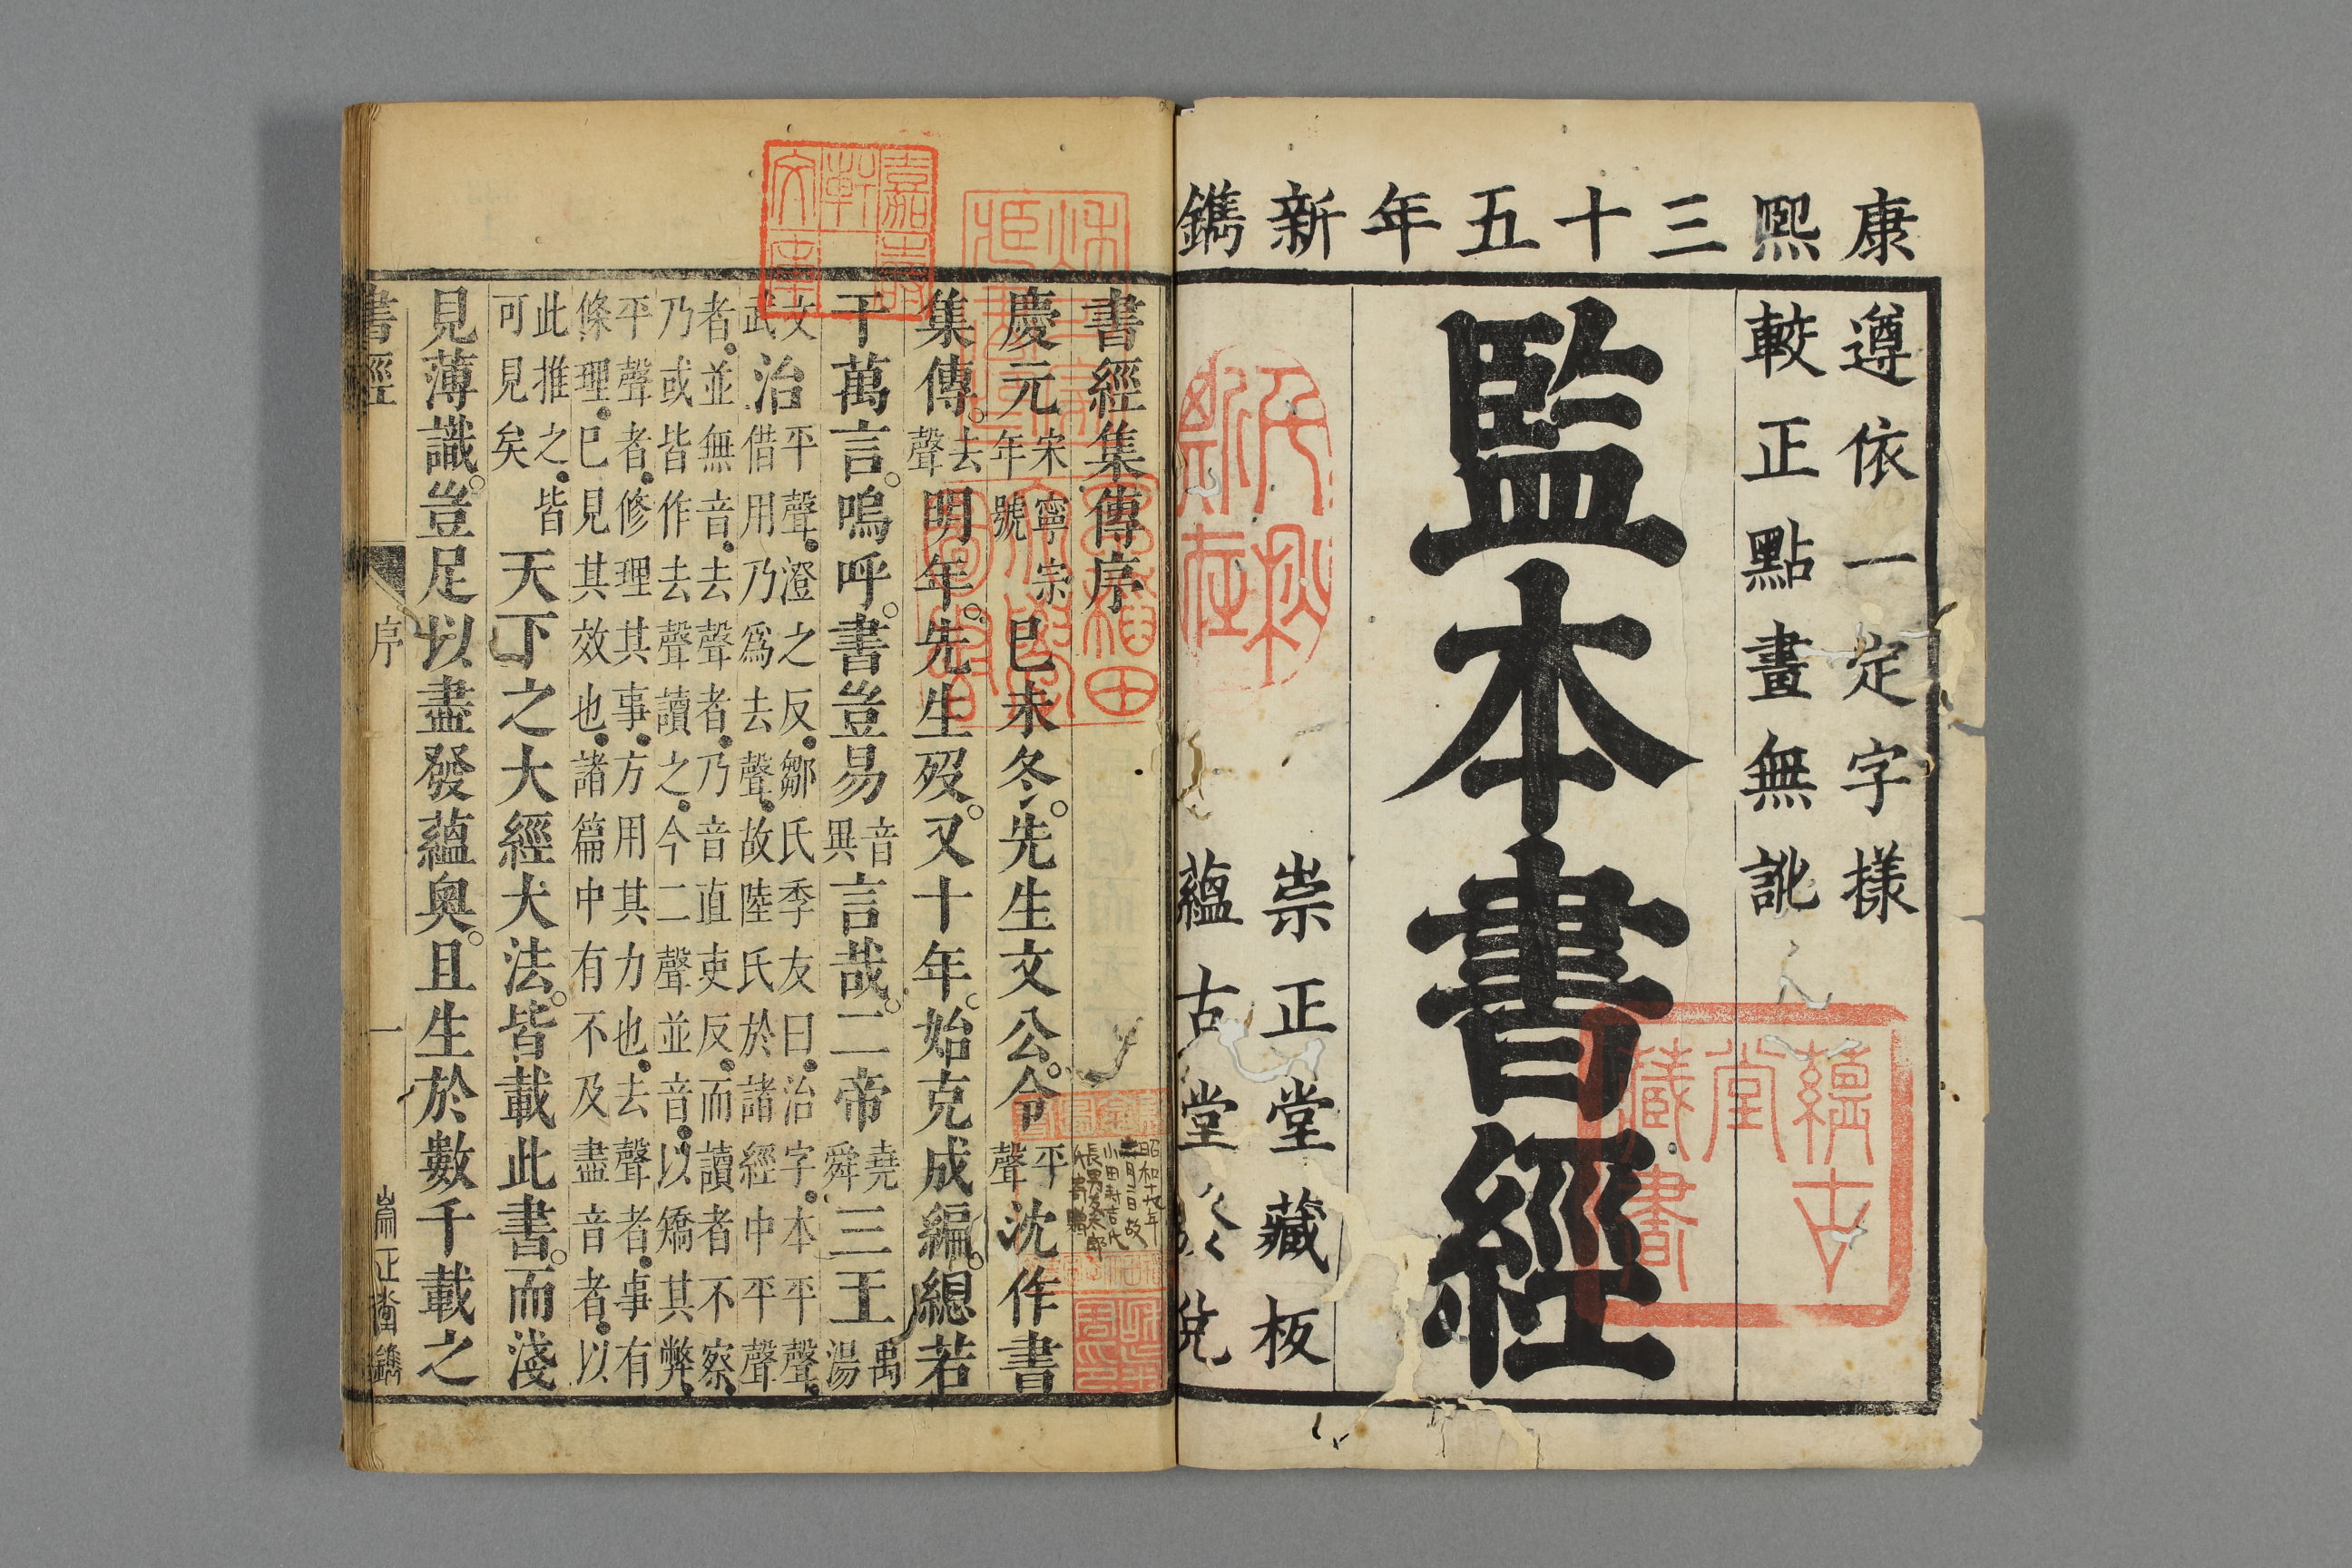 康熙三十五年新鐫
遵依一定字樣
較正點畫無訛
監本書經
崇正堂藏板
蘊古堂發兌
蘊古堂藏書
書經集傳序
慶元宋寧宗年號已未冬。先生文公。令平聲沈作書
集傳。去聲明年。先生歿。又十年。始克成編。總若
干萬言。嗚呼。書豈易音異言哉。二帝堯舜三王禹湯
文武治平聲澄之反鄒氏季友曰治字本平聲借用乃爲去聲故陸氏於諸經中平聲
者並無音去聲者乃音直吏反而讀者不察乃或皆作去聲讀之今二聲並音以矯其弊
平聲者修理其事方用其力也去聲者事有條理已見其效也諸篇中有不及盡音者以
此推之皆可見矣天下之大經大法。皆載此書。而淺
見薄識。豈足以盡發蘊奥。且生於數千載之
書經 序 一 崇正堂鐫
嘉壽軒文庫
昭和十九年
二月二日故
小田村吉氏
長男友太郎
氏寄贈